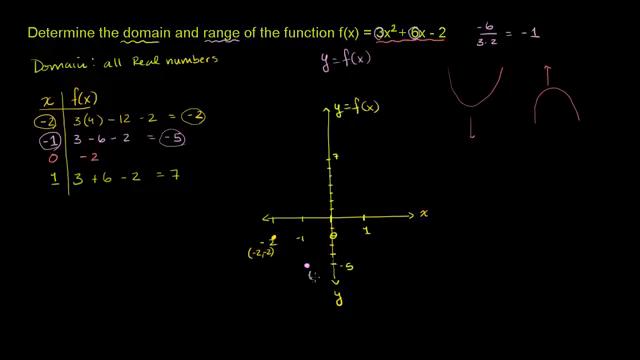 Determine the domain and range of the function f(x) = 3x² + 6x - 2
-6
3·2
= -1
Domain: all Real numbers
y = f(x)
x f(x)
-2 3(4) - 12 - 2 = -2
-1 3 - 6 - 2 = -5
0 -2
1 3 + 6 - 2 = 7
y = f(x)
7
x
-2 -1 0 1
(-2,-2)
-5
y